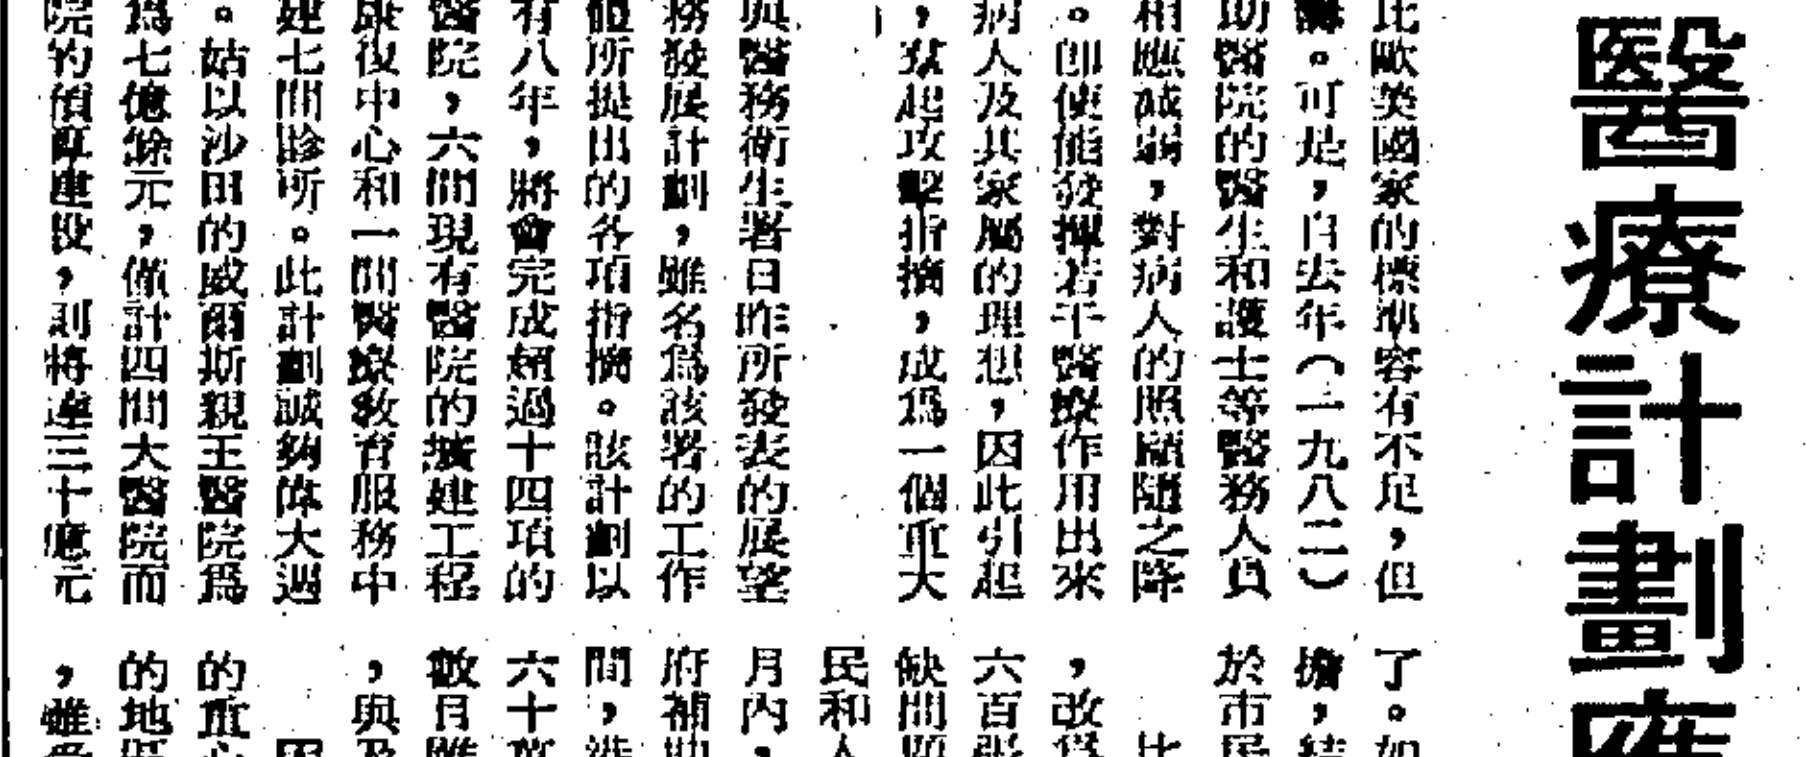 醫療計劃應
比歐美國家的標準容有不足，但
。可是，自去年（一九八二）
助醫院的醫生和護士等醫務人員
相應減弱，對病人的照顧隨之降
。即使能發揮若干醫療作用出來
病人及其家屬的理想，因此引起
，羣起攻擊指摘，成爲一個重大
與醫務衛生署日昨所發表的展望
務發展計劃，雖名爲該署的工作
體所提出的各項指摘。該計劃以
有八年，將會完成超過十四項的
醫院，六間現有醫院的擴建工程
康復中心和一間醫療敎育服務中
建七間診所。此計劃誠夠偉大週
。姑以沙田的威爾斯親王醫院爲
爲七億餘元，僅計四間大醫院而
院的預算建設，則將達三十億元
了。如
擔，結
於市民
比
，改爲
六百張
缺問題
民和人
月內，
府補助
間，
六十萬
數月雖
，與及
因
的重心
的地區
，雖